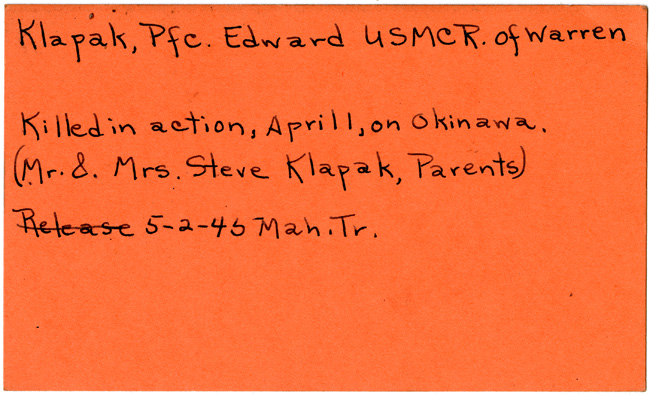 Klapak, Pfc. Edward USMCR. of Warren
Killed in action, April 1, on Okinawa.
(Mr. & Mrs. Steve Klapak, Parents)
Release 5-2-45 Mah. Tr.